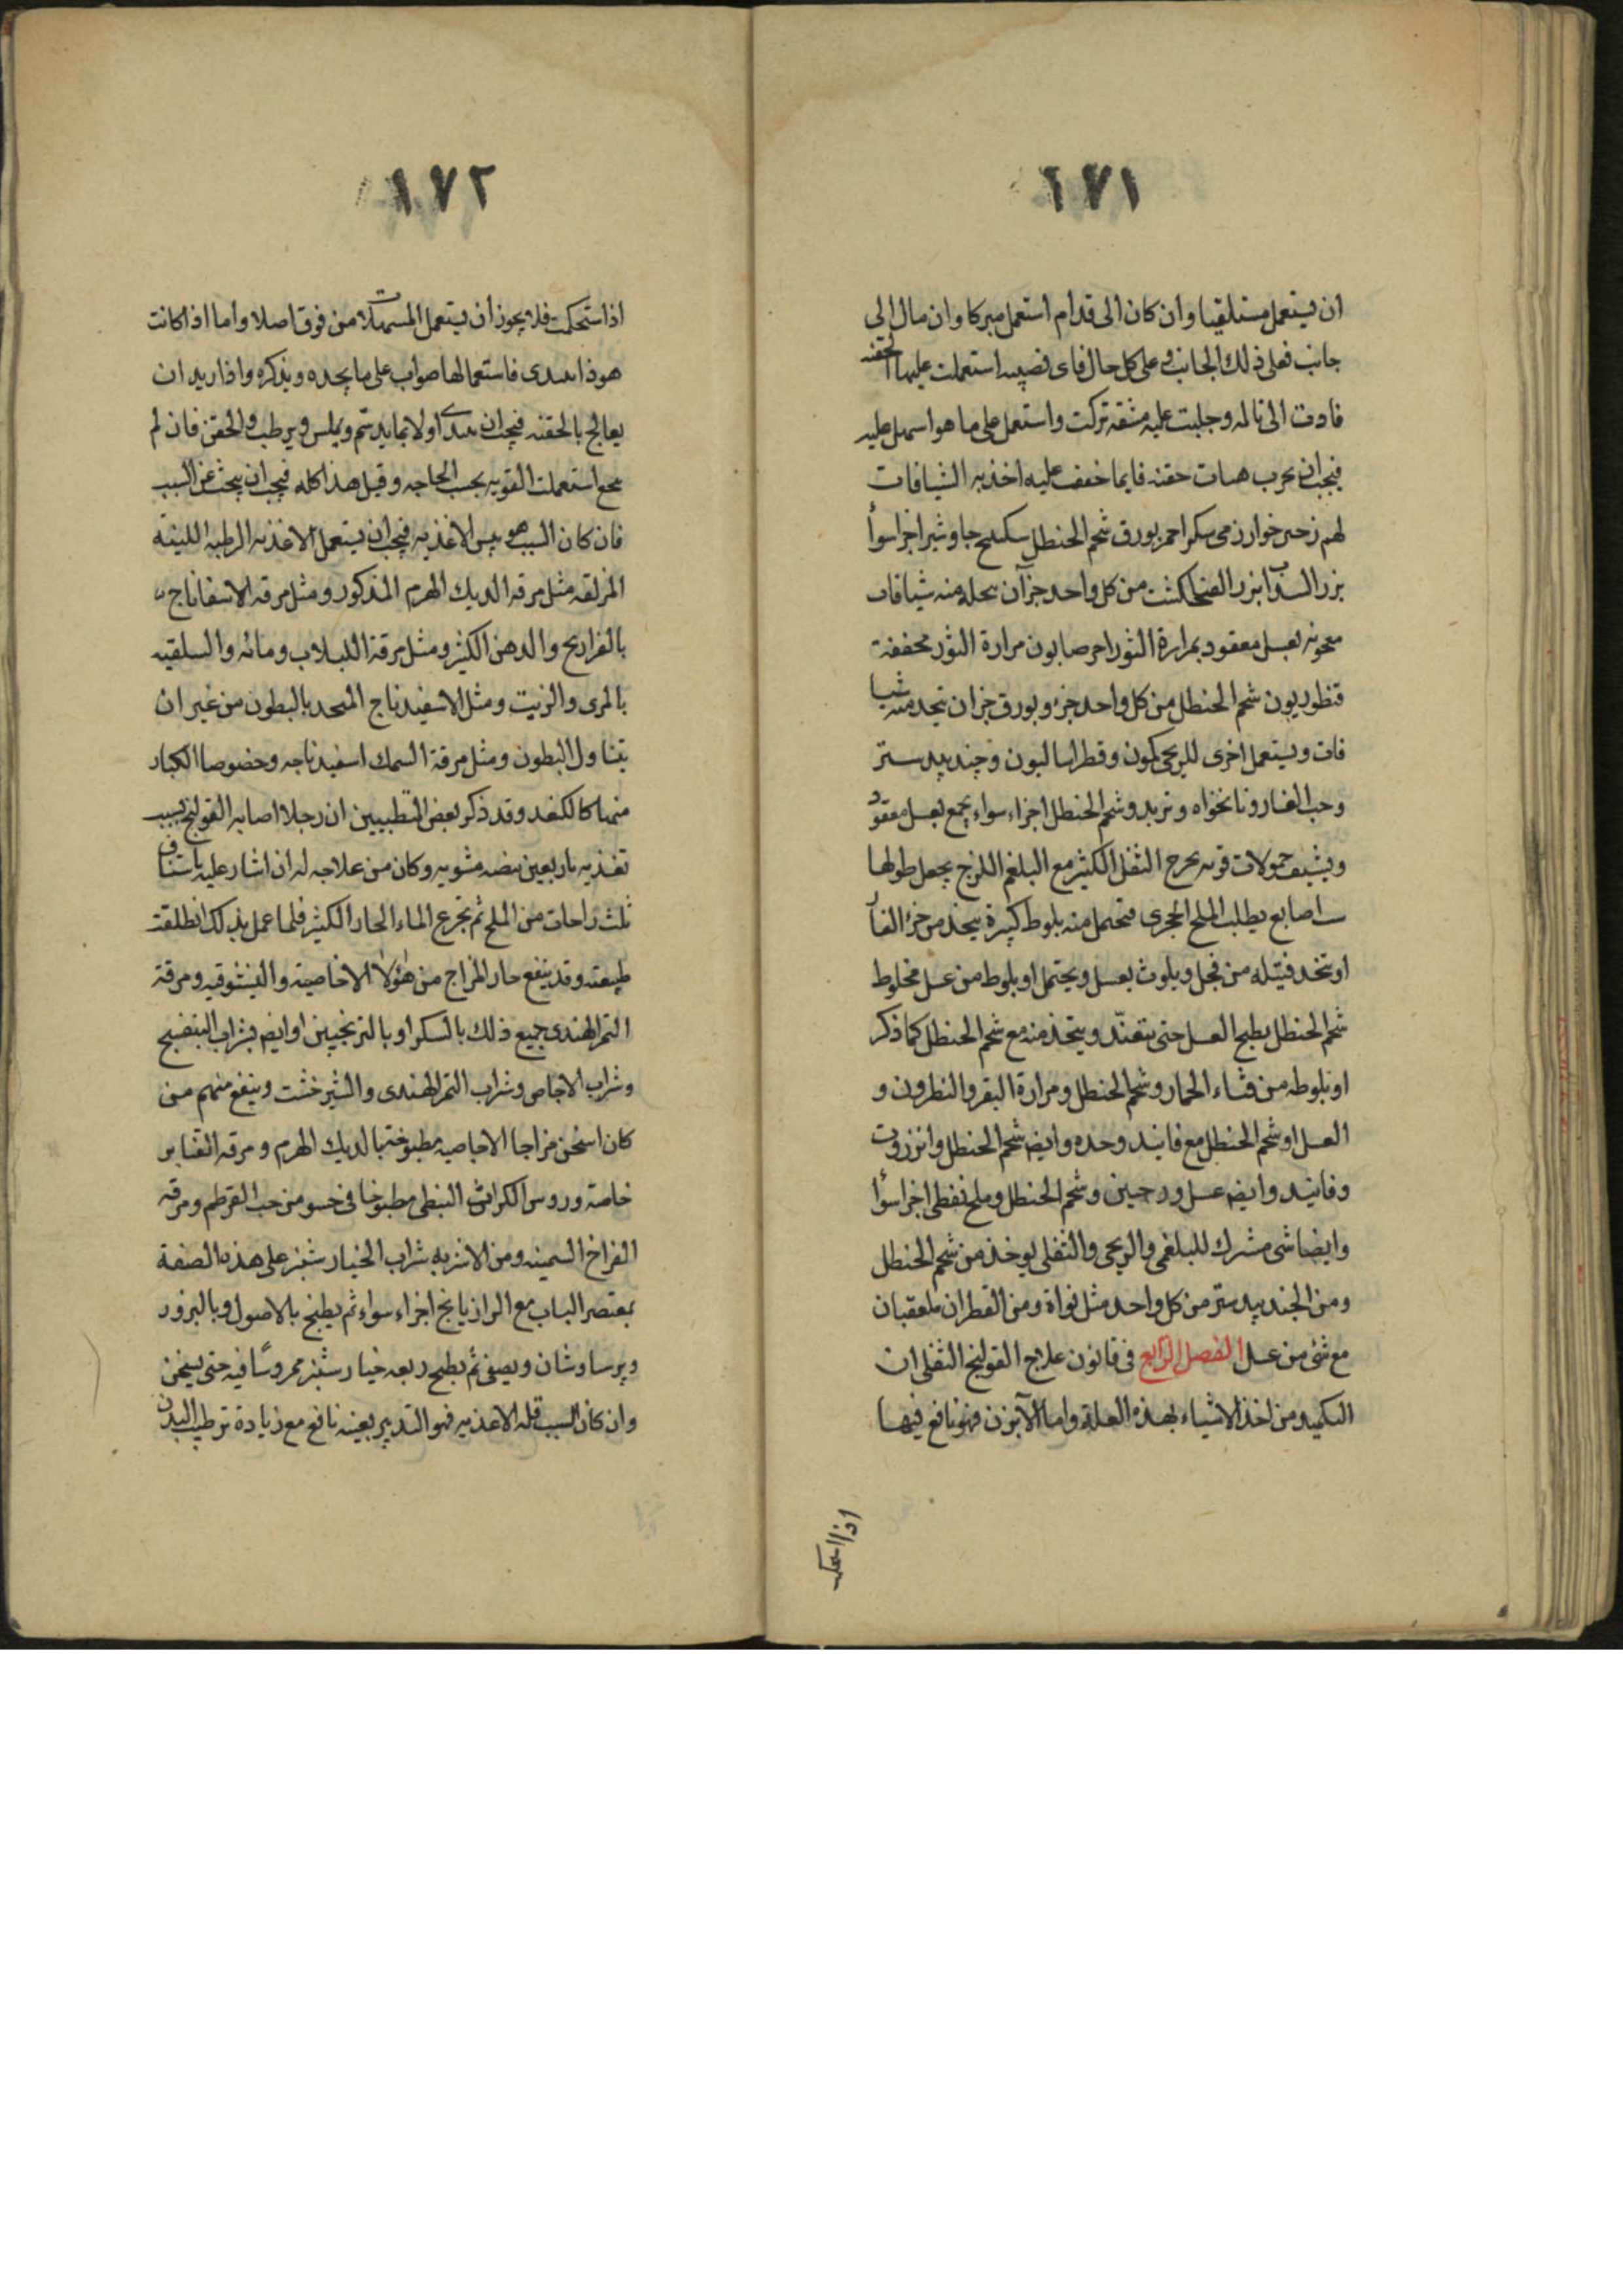 ١٧١
ان يستعمل مستلقيا وان كان الى قدام استعمل مبركا وان مال الى
جانب فعلى ذلك الجانب وعلى كل حال فاى نصبه استعملت عليها الحقنه
فادت الى تالمه وجلبت عليه مشقه تركت واستعمل على ما هو اسهل عليه
فيجب ان يجرب هيات حقنه فايما خفف عليه اخذ به الشيافات
لهم زحير خوارزمى سكر احمر بورق شحم الحنطل سكبينج جاوشير اجزا سوأ
بزر السذاب بزر الفنجنكشت من كل واحد جزآن يتخذ منه شيافات
معجونه بعسل معقود بمرارة الثور اخر صابون مرارة الثور مجففة
قنطوريون شحم الحنطل من كل واحد جزء وبورق جزان يتخذ منه شيا
فات ويستعمل اخرى للريحى كمون وقطراساليون وجندبيدستر
وحب الغار ونانخواه وتربد وشحم الحنطل اجزاء سواء يجمع بعسل معقود
ويشيف حمولات قويه تخرج الثفل الكثير مع البلغم اللزج يجعل طولها
ست اصابع يطلب الملح الحجرى فتحمل منه بلوط كبيرة يتخذ من خرأ الفأر
او تتخد فتيله من فجل ويلوث بعسل ويحتمل او بلوط من عسل مخلوط
شحم الحنطل يطبخ العسل حتى يتعقد ويتخذ منه مع شحم الحنطل كما ذكر
او بلوطه من قثاء الحمار وشحم الحنطل ومرارة البقر والنطرون و
العسل او شحم الحنطل مع فانيد وحده وايضا شحم الحنطل وانزروت
وفانيد وايضا عسل وشحم الحنطل وملح نفطى اجزا سوأ
وايضا شى مشترك للبلغمى والريحى والثفلى يوخذ من شحم الحنطل
ومن الجندبيدستر من كل واحد مثل نواة ومن القطران ملعقتان
مع شئ من عسل الفصل الرابع فى قانون علاج القولنج الثفلى ان
التكميد من اخذ الاشياء بهذه العلة واما الآبزن فهو نافع فيها
اذا استحكمت
١٧٢
اذا ستحكمت فلا يجوز ان يستعمل المسهلات من فوق اصلا واما اذا كانت
هو ذا تبتدى فاستعمالها صواب على ما يجده ويذكره واذا اريد ان
يعالج بالحقنه فيجب ان يبتدى اولا بما يدسم ويملس ويرطب والحقن فان لم
ينجع استعملت القويه بحسب الحاجه وقبل هذا كله فيجب ان يبحث عن السبب
فان كان السبب هو يبس الاغذيه فيجب ان يستعمل الاغذيه الرطبه اللينة
المزلقه مثل مرقه الديك الهرم المذكور ومثل مرقه الاسفاناج
بالفراريح والدهن الكثير ومثل مرقة اللبلاب ومائه والسلقيه
بالمرى والزيت ومثل الاسفيدناج المتخد بالبطون من غير ان
يتناول البطون ومثل مرقة السمك اسفيدناجه وخصوصا الكبار
منها كالكنعد وقد ذكر بعض المتطببين ان رجلا اصابه القولنج بسبب
تغذيه باربعين بيضه مشويه وكان من علاجه له ان اشار عليه باستفا ف
ثلث راحات من الملح ثم تجرع الماء الحار الكثير فلما عمل بذلك انطلقت
طبيعته وقد ينفع حار المزاج من هولاء الاجاصية والنيشوقيه ومرقة
التمر الهندى جميع ذلك بالسكر او بالترنجبين او ايضا بشراب البنفسج
وشراب الاجاص وشراب التمر الهندى والشيرخشت وينفع منهم من
كان اسخن مزاجا الاجاصيه مطبوختها بالديك الهرم ومرقه القنابر
خاصة وروس الكراث النبطى مطبوخا فى حسو من حب القرطم ومرقه
الفراخ السمينه ومن الاشربه شراب الخيارشنبر على هذه الصفة
بمعتصر اللباب مع الرازيانج اجزاء سواء ثم يطبخ بالاصول وبالبزور
وبرسياوشان ويصفى ثم يطبخ ربعه خيارشنبر ممروسًا فيه حتى يسخن
وان كان السبب قله الاغذيه فهو التدبير بعينه نافع مع زيادة ترطيب البدن